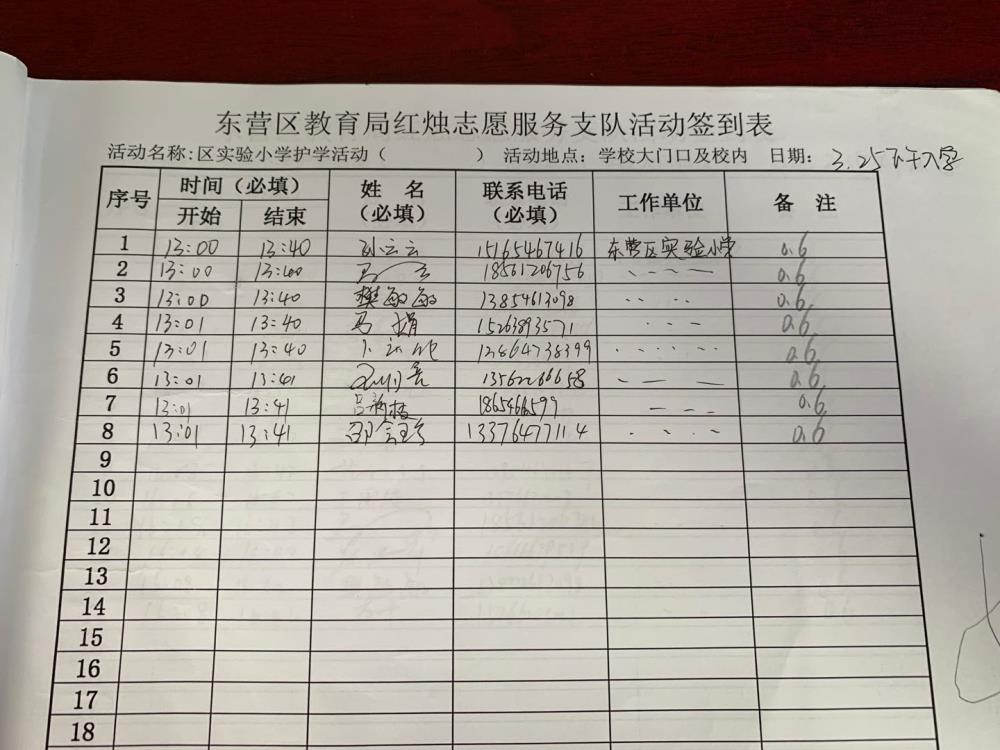 东营区教育局红烛志愿服务支队活动签到表
活动名称:区实验小学护学活动（ ） 活动地点：学校大门口及校内 日期：3.25下午入学
序号 时间（必填） 姓名（必填） 联系电话（必填） 工作单位 备注
开始 结束
1 13:00 13:40 孙云云 15165467416 东营区实验小学 0.6
2 13:00 13:40 马 18561206756 0.6
3 13:00 13:40 樊 13854613098 0.6
4 13:01 13:40 马娟 15263893571 0.6
5 13:01 13:40 12864738399 0.6
6 13:01 13:41 0.6
7 13:01 13:41 1865466599 0.6
8 13:01 13:41 邵 13376477114 0.6
9
10
11
12
13
14
15
16
17
18